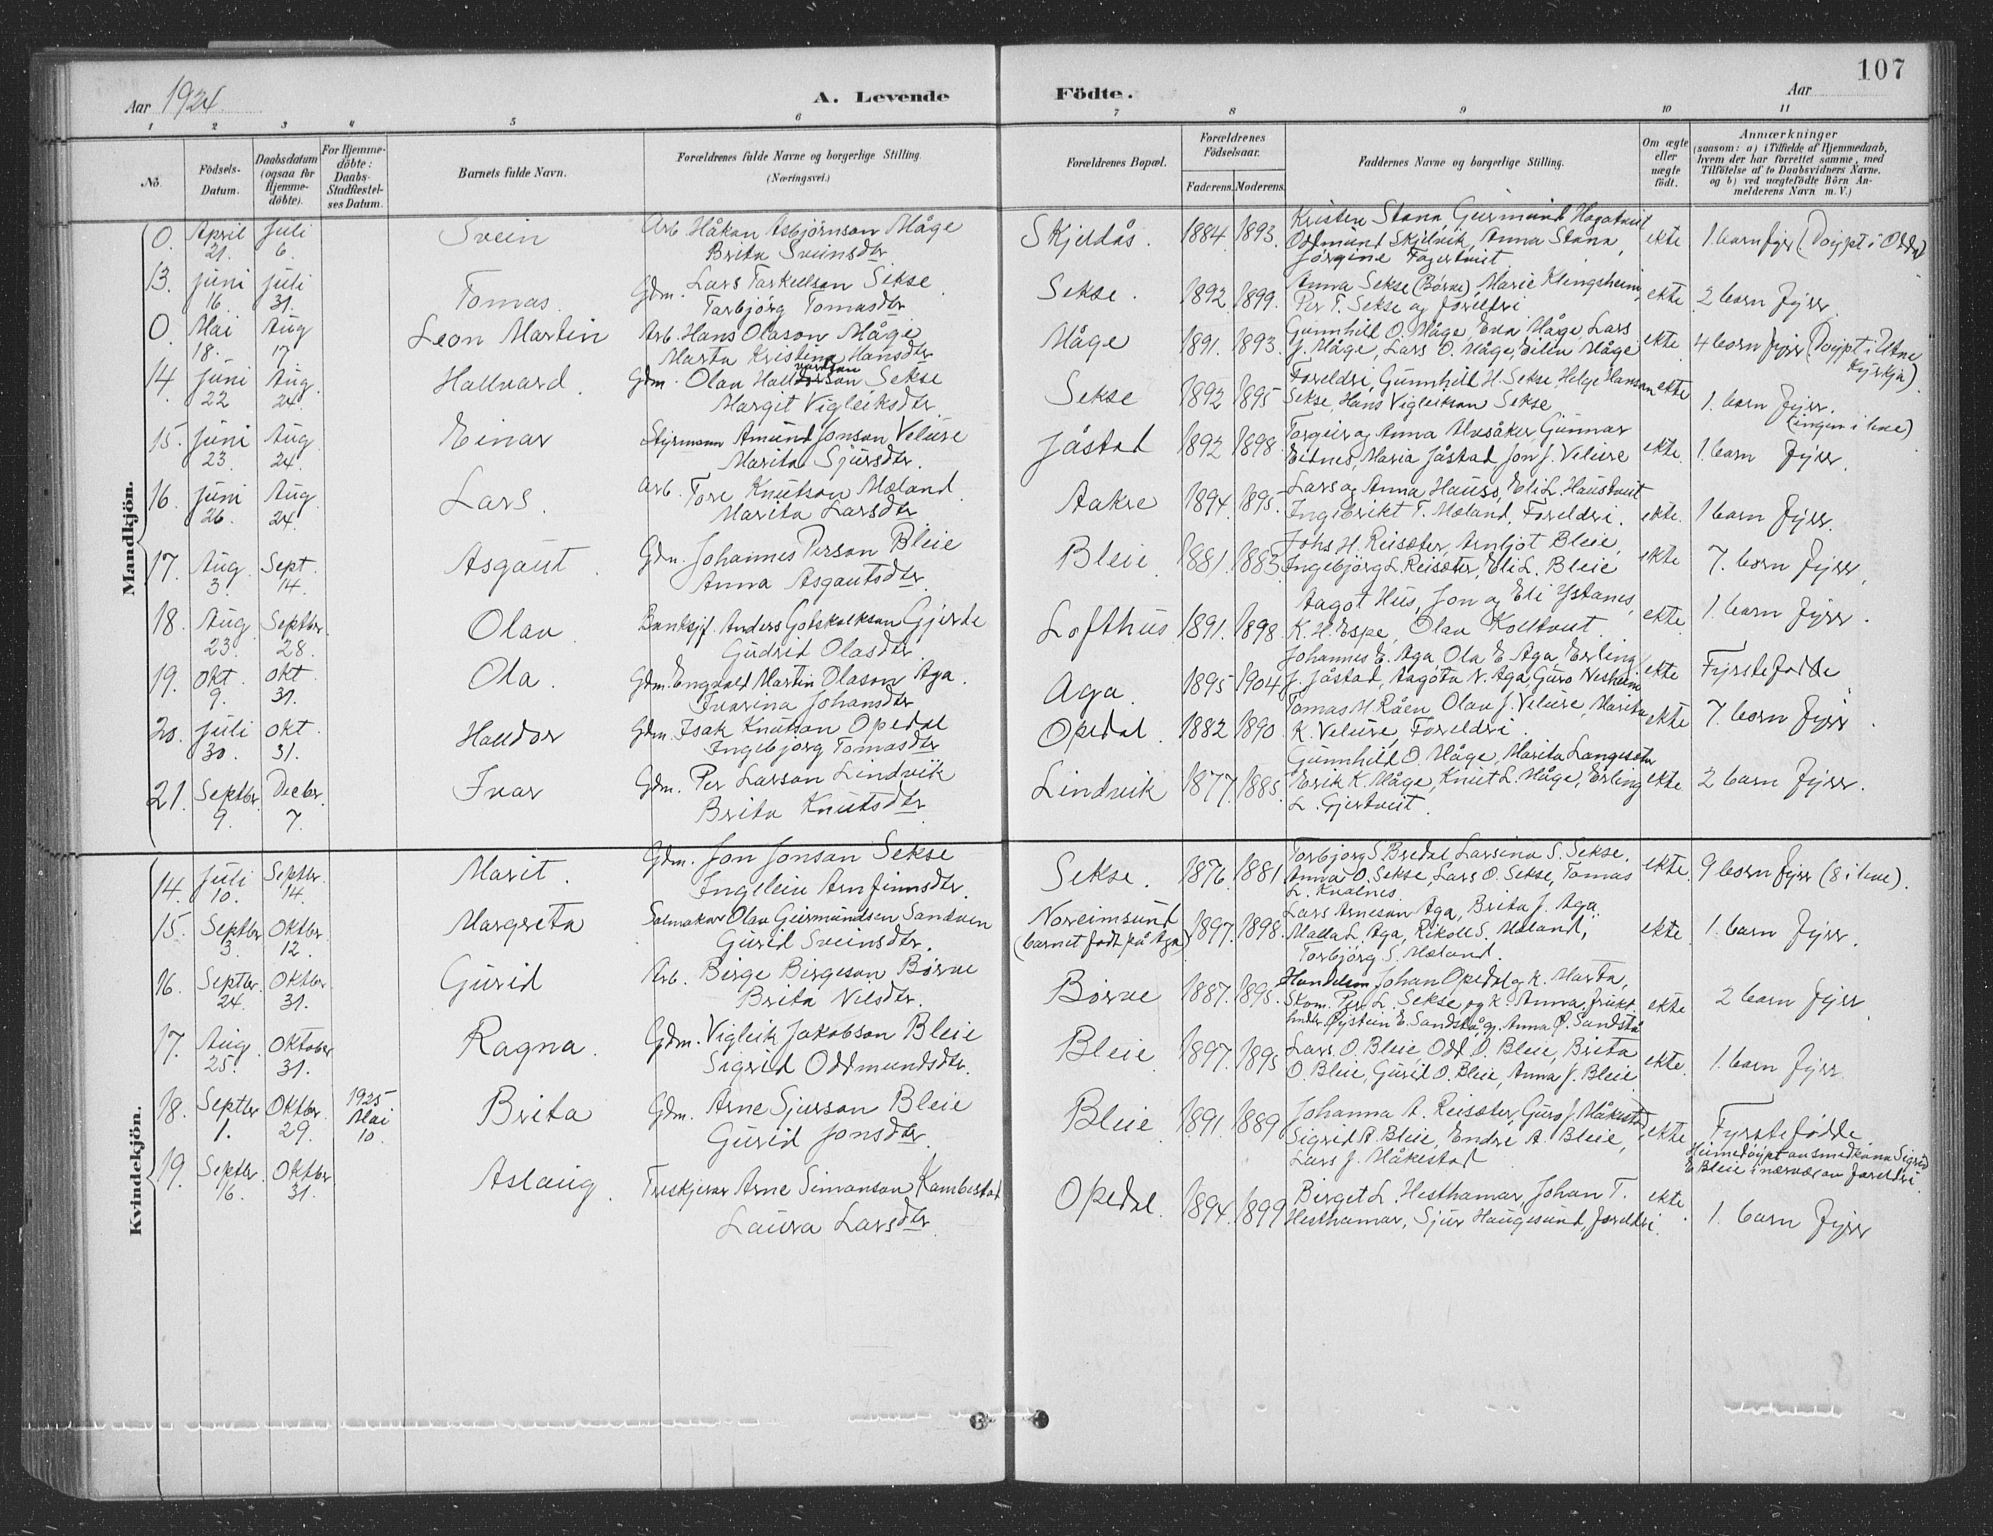 107
Aar 1924
A. Levende Födte.
Aar
1 2 3 4 5 6 7 8 9 10 11
No.
Födsels-Datum.
Daabsdatum (ogsaa for Hjemme-döbte).
For Hjemme-döbte: Daabs-Stadfæstel-ses Datum.
Barnets fulde Navn.
Forældrenes fulde Navne og borgerlige Stilling. (Næringsvei.)
Forældrenes Bopæl.
Forældrenes Födselsaar.
Faderens. Moderens.
Faddernes Navne og borgerlige Stilling.
Om ægte eller uægte födt.
Anmærkninger
(saasom: a) i Tilfælde af Hjemmedaab,
hvem der har forrettet samme, med
Tilföielse af to Daabsvidners Navne.
og b) ved uægtefödte Börn An-
melderens Navn m. V.)
Mandkjön.
0. April 21. Juli 6. Svein Arb. Håkon Asbjørnson Måge
Brita Sveinsdtr. Skjeldås. 1884. 1893. Kristen Stana, Geirmund Hagatveit
Oddmund Skjelvik, Anna Stana,
Jørgine Fagertveit ekte 1. barn fyrr (Døypt i Odda)
13. Juni 16. Juli 31. Tomas. Gdm. Lars Torkellson Sekse.
Torbjørg Tomasdtr. Sekse. 1892. 1899. Anna Sekse (Børve), Marie Klingsheim,
Per T. Sekse og foreldri ekte 2 born fyrr.
0. Mai 18. Aug 17 Leon Martin Arb. Hans Olason Måge
Marta Kristina Hansdtr. Måge 1891. 1893. Gunnhild O. Måge, Eva Måge, Lars
J. Måge, Lars O. Måge, Måge ekte. 4 born fyrr (Døypt i Utne
kyrkja).
14. Juni 22 Aug. 24. Hallvard. Gdm. Olav Hallvardson Sekse
Margit Vigleiksdtr. Sekse 1892 1895 Foreldri, Gunnhild H. Sekse, Helge Hanson
Sekse, Hans Vigleikson Sekse ekte 1. barn fyrr.
(ingen i live)
15. Juni 23. Aug 24. Einar Styrmann Amund Jonson Velure
Marita Sjursdtr. Jåstad 1892 1898. Torgeir og Anna Gunnar
Eitnes, Maria Jåstad, Jon J. Velure ekte. 1. barn fyrr.
16. Juni 26. Aug 24. Lars. Arb. Tore Knutson Mæland.
Marita Larsdtr Aakre 1894. 1895. Lars og Anna Hauso, Eli L. Haustveit
Ingebrikt T. Mæland, Foreldri. ekte. 1 barn fyrr.
17. Aug. 3. Sept. 14. Asgaut. Gdm. Johannes Person Bleie
Anna Asgautsdtr. Bleie 1881. 1883. Johs H. Reisæter, Arnljot Bleie,
Ingebjørg L. Reisæter, Eli L. Bleie ekte 7. born fyrr.
18. Aug 23. Septbr. 28. Olav Banksjf. Anders Gotskalkson Gjerde
Gudrid Olasdtr. Lofthus 1891. 1898 Aagot Hus, Jon og Eli Ystanes,
K. H. Espe, Olav Kolltveit. ekte. 1. barn fyrr.
19. Okt. 9. Okt. 31. Ola. Gdm. Engvald Martin Olason Aga.
Ivarina Johansdtr Aga. 1895 1904 Johannes E. Aga, Ola E. Aga, Erling
J. Jåstad, Aagota N. Aga, Guro Nesheim ekte Fyrstefødde
20. Juli 30. Okt. 31. Halldor Gdm. Isak Knutson Opedal
Ingebjørg Tomasdtr Opedal. 1882 1890. Tomas M. Råen, Olav J. Velure, Marita
K. Velure, Foreldri. ekte 7. born fyrr.
21. Septbr. 9. Decbr. 7. Ivar Gdm. Per Larson Lindvik
Brita Knutsdtr. Lindvik 1877. 1885. Gunnhild O. Måge, Marita Langesæter
Eirik K. Måge, Knut L. Måge, Erling
L. Gjertveit. ekte 2 born fyrr.
Kvindekjön.
14. Juli 10. Septbr. 14. Marit. Gdm. Jon Jonson Sekse
Ingeleiv Arnfinnsdtr. Sekse. 1876. 1881 Torbjørg S. Bredal, Larsina S. Sekse.
Anna O. Sekse, Lars O. Sekse, Tomas
L. Kvalnes. ekte. 9 born fyrr (8 i live).
15. Septbr 3. Oktbr. 12. Margreta Salmakar Olav Geirmundsen Sandven
Gurid Sveinsdtr. Noreimsund
(barnet født på Aga) 1897. 1898. Lars Arneson Aga, Brita J. Aga.
Malla L. Aga, Rikoll S. Mæland,
Torbjørg S. Mæland. ekte. 1. barn fyrr.
16. Septbr. 24. Oktbr. 31. Gurid Arb. Birge Birgeson Børve
Brita Nilsdtr. Børve 1887. 1895. Handelsm Johan Opedal og k. Marta,
Skom. Per L. Sekse og k. Anna, frukt
hndlr. Øystein E. Sandstå, og Anna Ø. Sandstå ekte 2 born fyrr.
17. Aug. 25. Oktober 31. Ragna. Gdm. Vigleik Jakobson Bleie
Sigrid Oddmundsdtr. Bleie 1897. 1895 Lars O. Bleie, Odd O. Bleie, Brita
O. Bleie, Gurid O. Bleie, Anna J. Bleie. ekte. 1. barn fyrr.
18. Septbr 1. Oktbr. 29. 1925 Mai 10. Brita Gdm. Arne Sjurson Bleie
Gurid Jonsdtr. Bleie 1891. 1889 Johanna A. Reisæter, Guro J. Måkestad,
Sigrid A. Bleie, Endre A. Bleie,
Lars J. Måkestad ekte Fyrstefødde
Heimedøypt av smedkona Sigrid
E. Bleie i nærvær av foreldri.
19. Septbr. 16. Oktbr 31. Aslaug. Treskjerar Arne Simonson Kambestad
Laura Larsdtr. Opedal. 1894. 1899 Birget L. Hesthamar, Johan T.
Hesthamar, Sjur Haugesund, foreldri. ekte. 1. barn fyrr